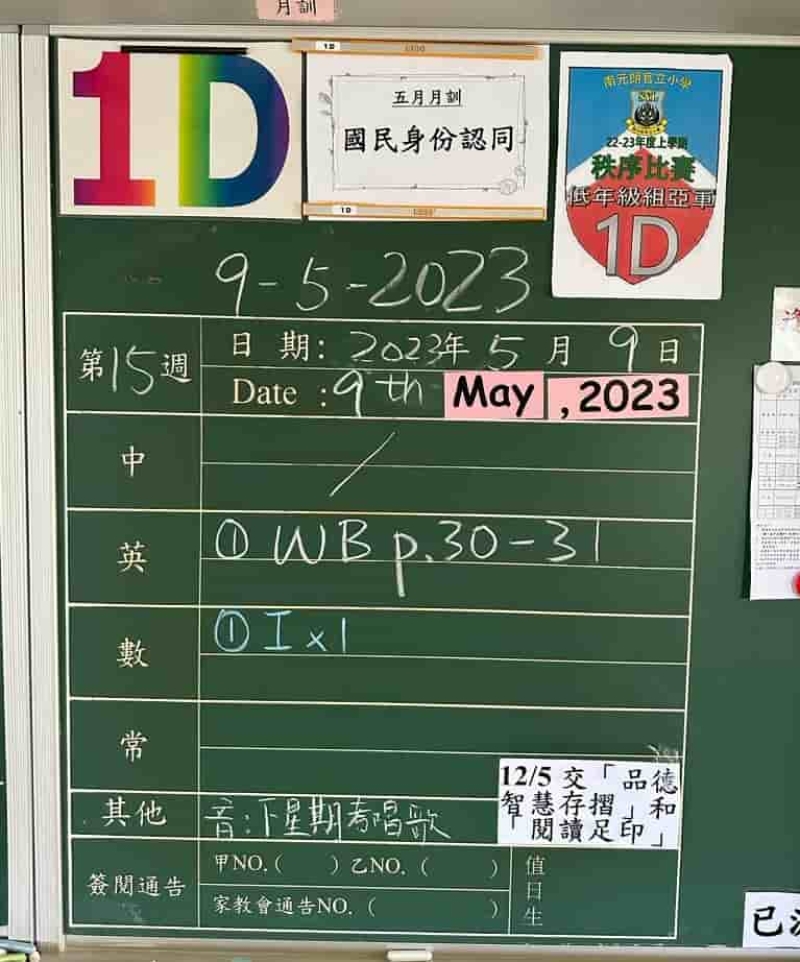 月訓
1D
1D
五月月訓
國民身份認同
1D
南元朗官立小學
22-23年度上學期
秩序比賽
低年級組亞軍
1D
9-5-2023
第15週
日期: 2023年5月9日
Date : 9th May , 2023
中
/
英
① WB p.30-31
數
① I x 1
常
12/5 交「品德
智慧存摺」和
「閱讀足印」
其他
音:下星期考唱歌
簽閱通告
甲NO.( ) 乙NO.( )
家教會通告NO.( )
值日生
已